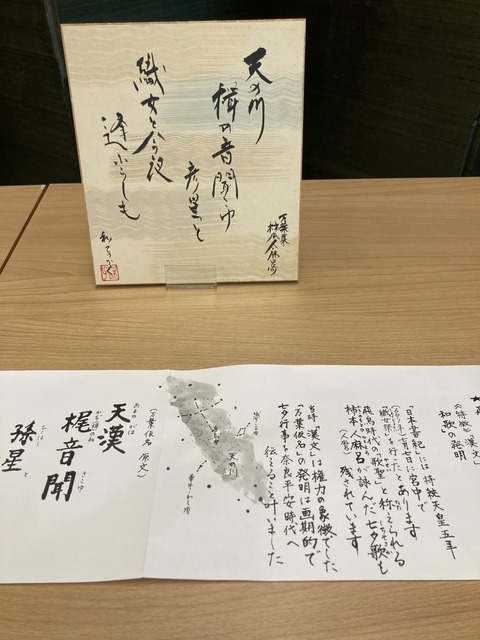 天の川
楫の音聞ゆ
彦星と
織女と今夜
逢ふらしも
万葉集
柿本人麻呂
《持統と漢文》
和歌の発明
「日本書紀」には持統天皇五年
七月七日に宮中で
織女祭を行なったとあります
飛鳥時代の「歌聖」と称えられる
柿本人麻呂が詠んだ七夕歌も
残されています
当時「漢文」は権力の象徴でした
「万葉仮名」の発明は画期的で
七夕行事を奈良平安時代へ
伝えること叶いました
天の川
(万葉仮名 原文)
天漢
梶音聞
孫星